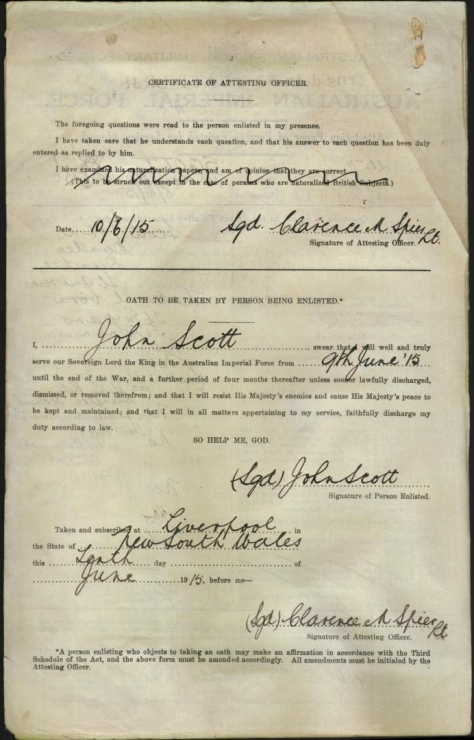 CERTIFICATE OF ATTESTING OFFICER.
The foregoing questions were read to the person enlisted in my presence.
I have taken care that he understands each question, and that his answer to each question has been duly
entered as replied to by him.
I have examined his naturalization papers and am of opinion that they are correct.
(This to be struck out except in the case of persons who are naturalized British Subjects.)
Date 10/6/15 Sgd. Clarence A Spier Lt.
Signature of Attesting Officer.
OATH TO BE TAKEN BY PERSON BEING ENLISTED.*
I, John Scott, swear that I will well and truly
serve our Sovereign Lord the King in the Australian Imperial Force from 9th June '15
until the end of the War, and a further period of four months thereafter unless sooner lawfully discharged,
dismissed, or removed therefrom; and that I will resist His Majesty's enemies and cause His Majesty's peace to
be kept and maintained; and that I will in all matters appertaining to my service, faithfully discharge my
duty according to law.
SO HELP ME, GOD.
(Sgd) John Scott
Signature of Person Enlisted.
Taken and subscribed at Liverpool in
the State of New South Wales
this Tenth day of
June 1915, before me—
(Sgd) Clarence A Spier Lt
Signature of Attesting Officer.
*A person enlisting who objects to taking an oath may make an affirmation in accordance with the Third
Schedule of the Act, and the above form must be amended accordingly. All amendments must be initialed by the
Attesting Officer.